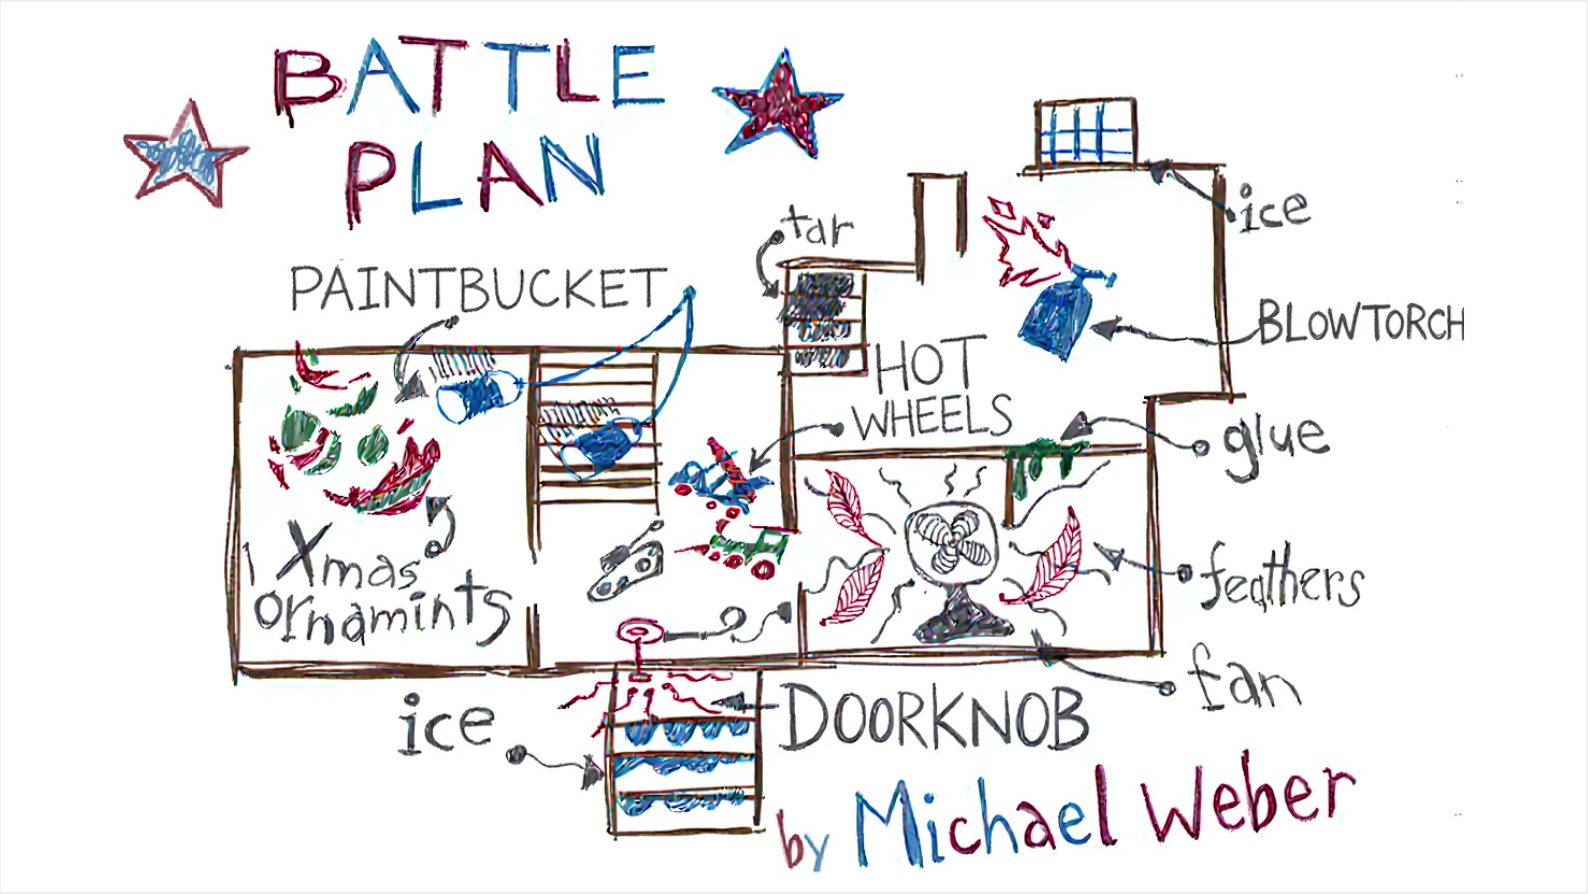 BATTLE
PLAN
ice
tar
PAINTBUCKET
BLOWTORCH
HOT
WHEELS
glue
Xmas
ornamints
feathers
fan
ice
DOORKNOB
by Michael Weber